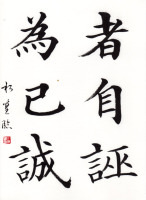 者自誣
為己誠
臨